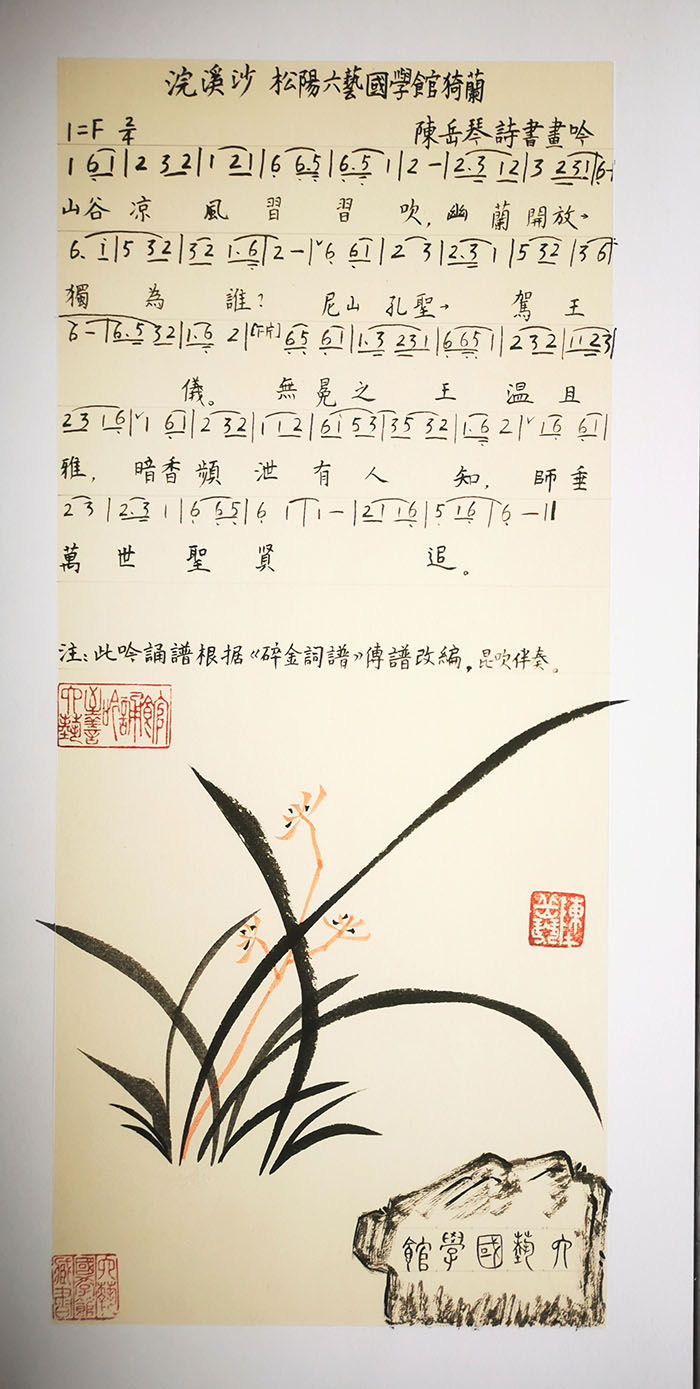 浣溪沙 松陽六藝國學館猗蘭
1=F 2/4
陳岳琴詩書畫吟
1 61|2 32|1 21|6 6.5|6.5 1|2 -|2.3 12|3 231|6-
山谷凉風習習吹,幽蘭開放→
6. i|5 32|32 1.6|2 -|ˇ6 61|2 3|2.3 1|5 32|3 6|
獨為誰?尼山孔聖→駕王
6 -|6.5 32|1.6 2|[下片]65 61|1.3 231|6651|232|1123|
儀。無冕之王温且
23 16|ˇ1 61|2 32|1 12|61 53|35 32|1.6 2|ˇ16 61|
雅,暗香頻泄有人知,師垂
23|2.3 1|6 65|6 1|1 -|2116|5 16|6 -||
萬世聖賢追。
注:此吟誦譜根据《碎金詞譜》傳譜改編,昆吹伴奏。
六藝國學館
六藝國學館藏書